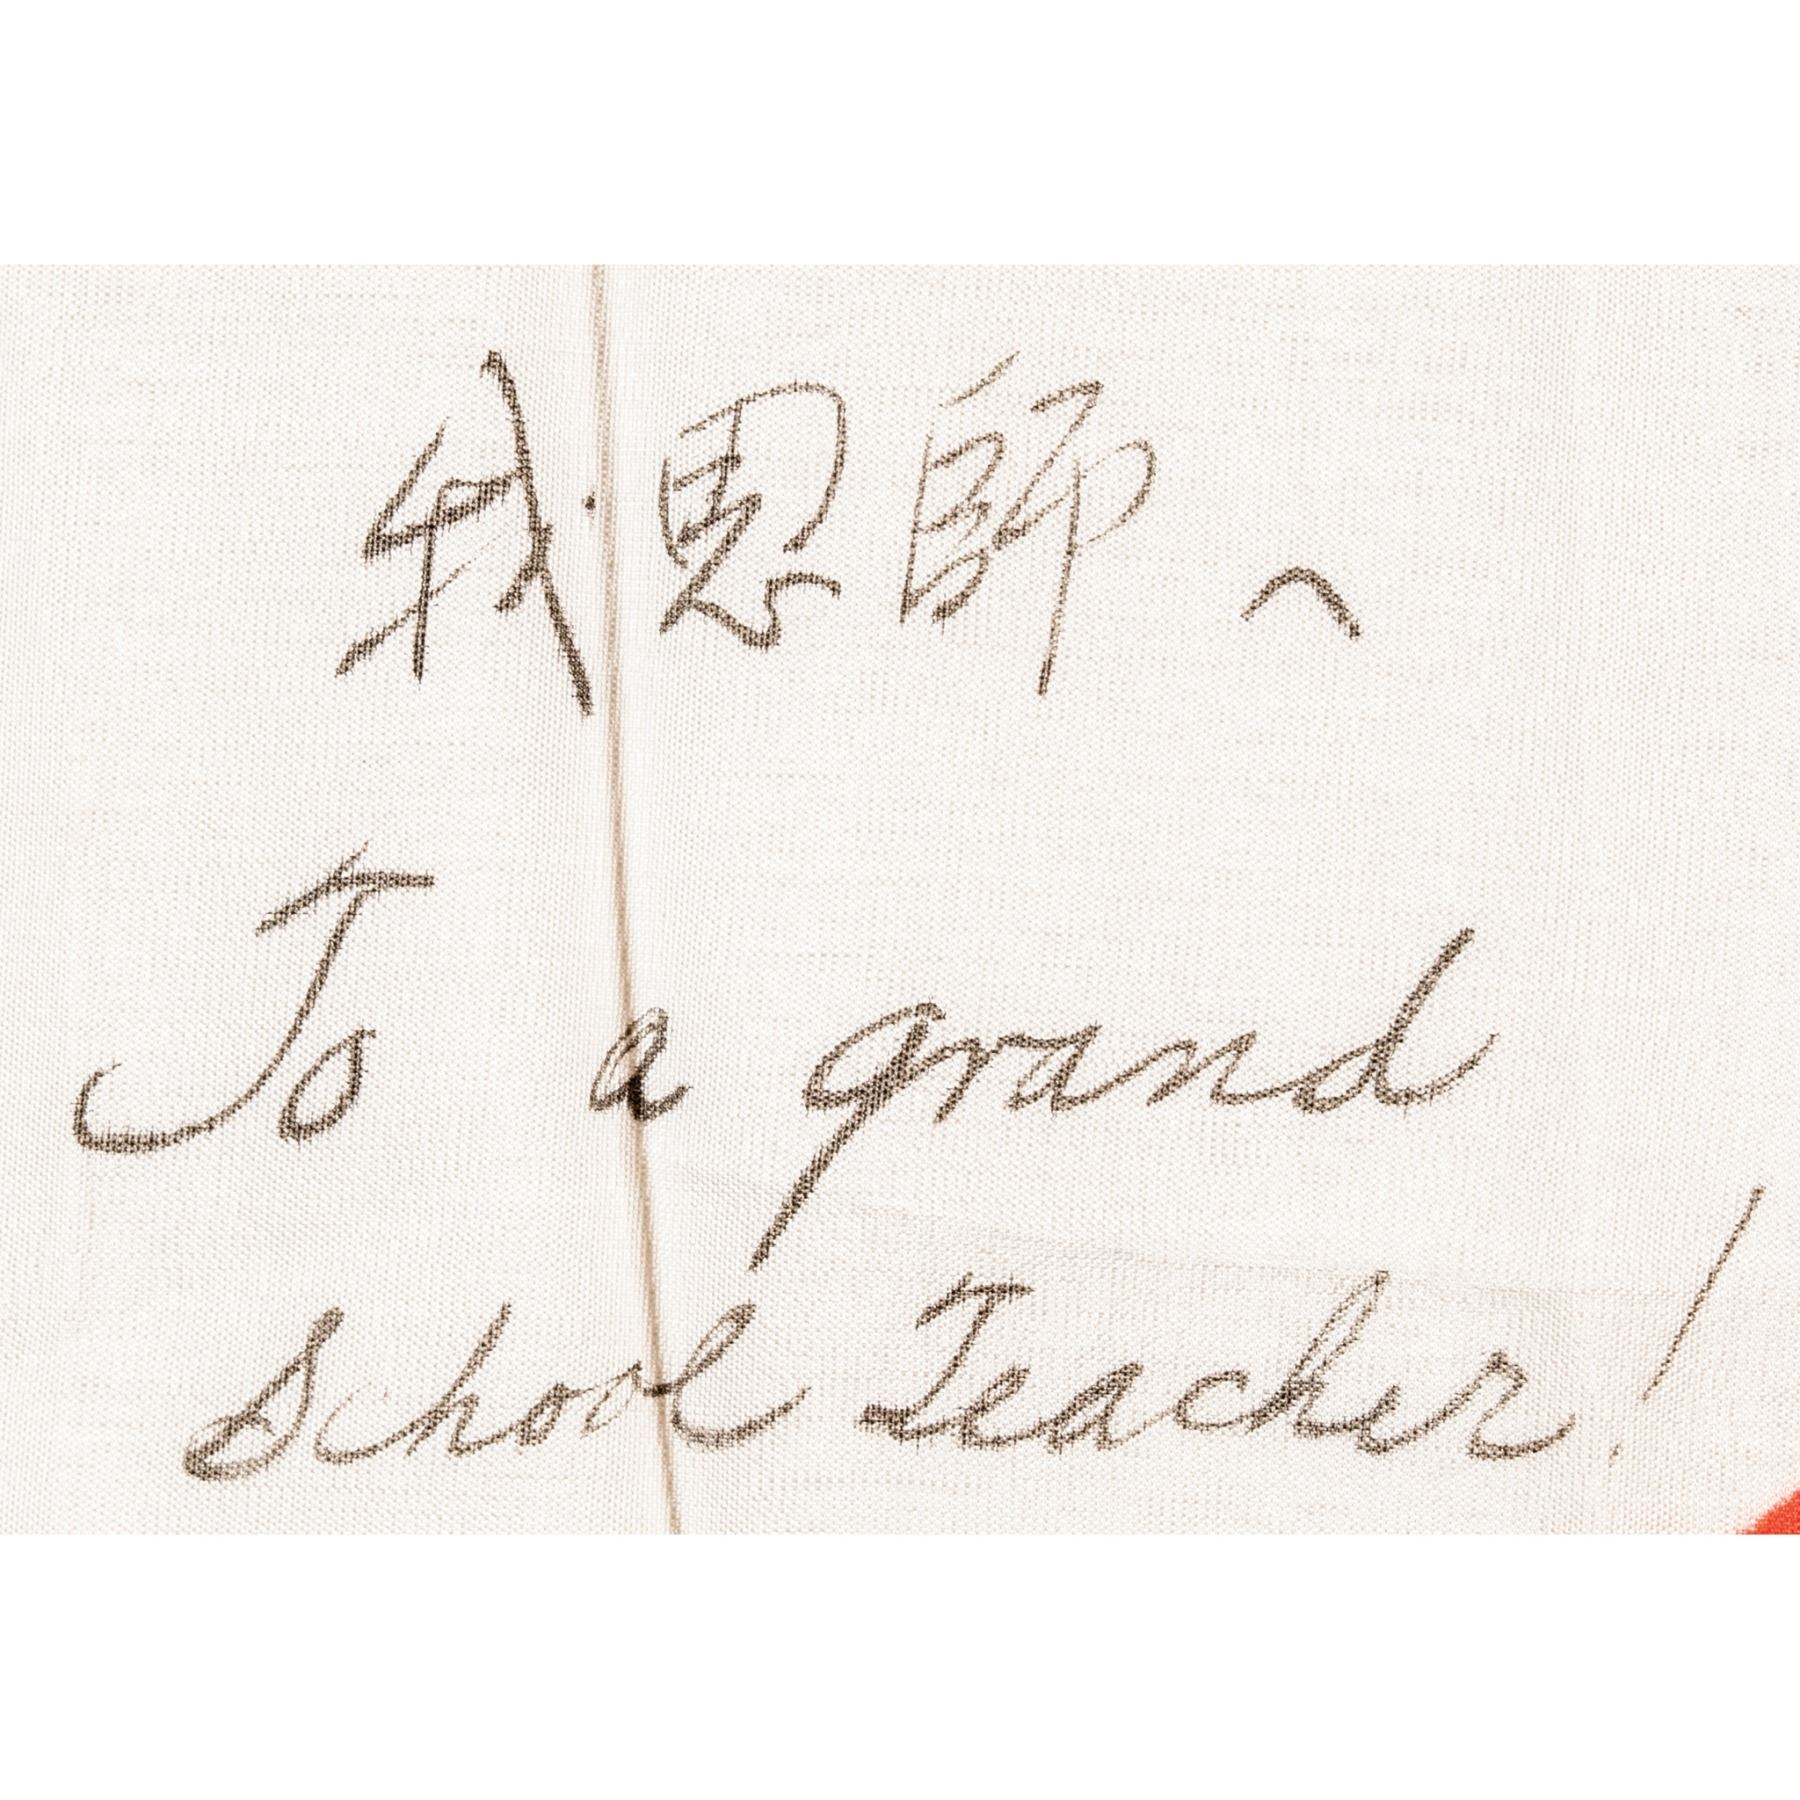 我恩師へ
To a grand
School Teacher!